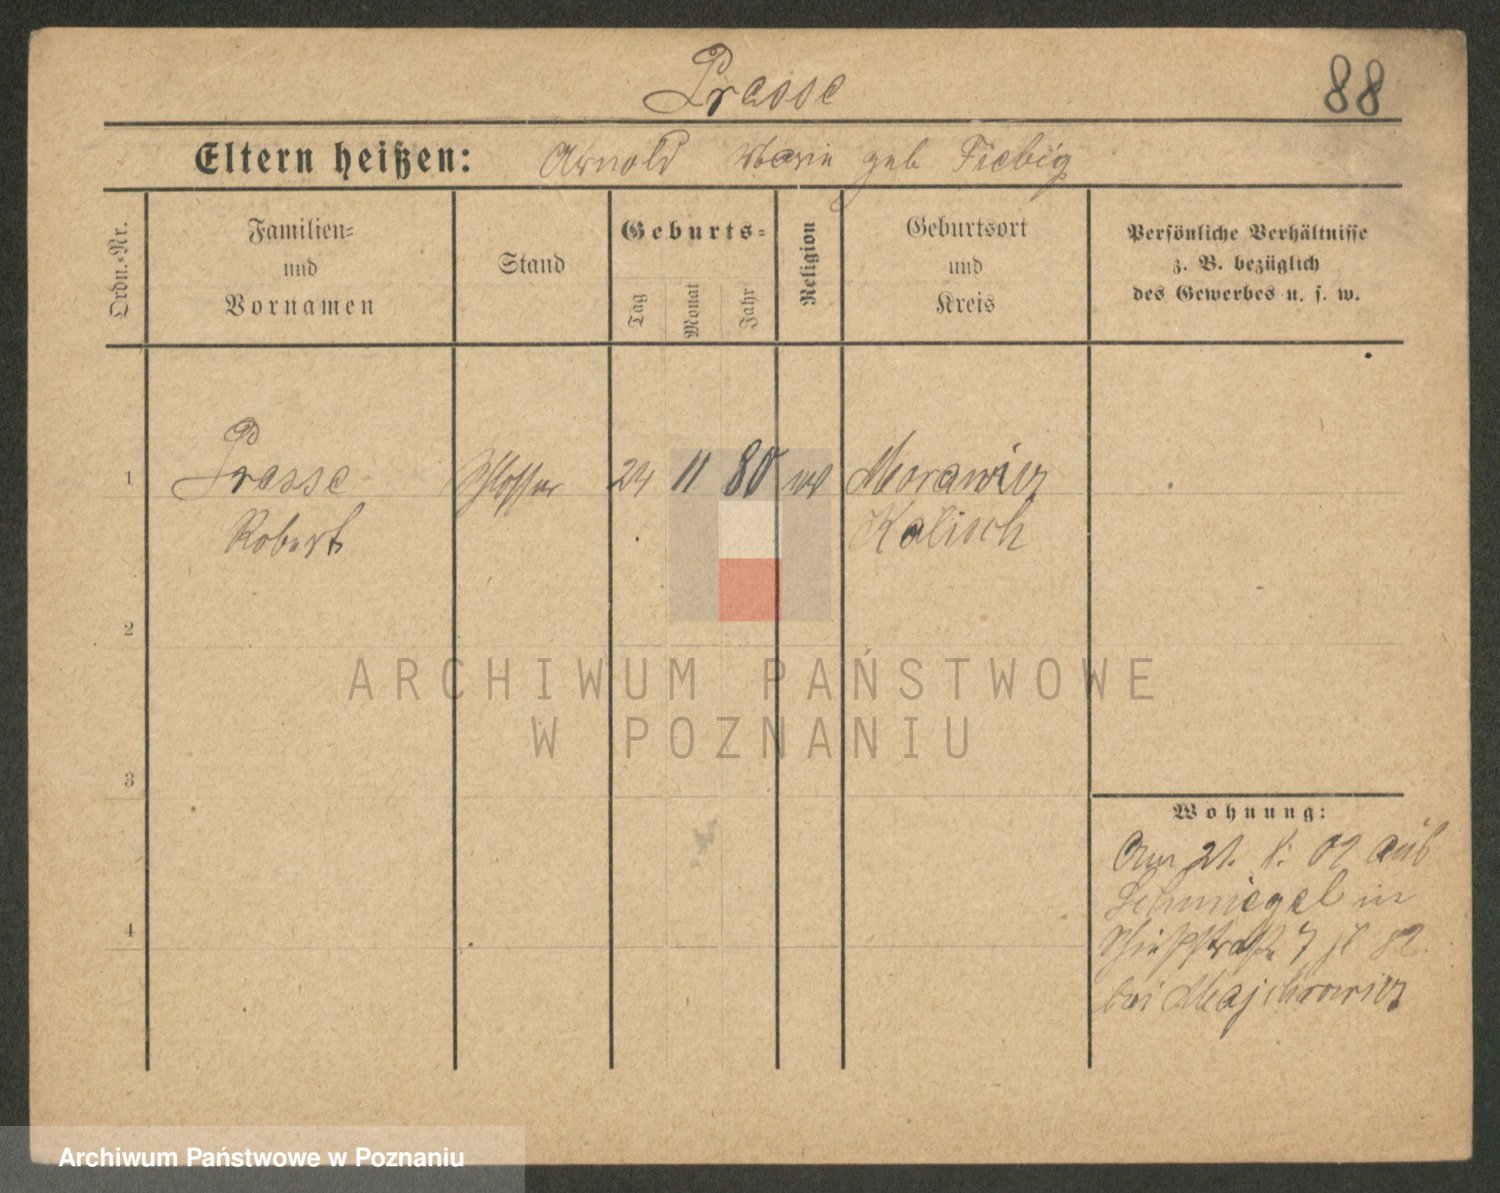 Prasse
88
Eltern heißen: Arnold Marie geb Fiebig
Ordn.-Nr.
Familien-
und
Vornamen
Stand
Geburts-
Tag
Monat
Jahr
Religion
Geburtsort
und
Kreis
Persönliche Verhältnisse
z. B. bezüglich
des Gewerbes u. s. w.
1 Prasse Schlosser 24 11 80 Morawicz
Robert Kalisch
2
ARCHIWUM PAŃSTWOWE
W POZNANIU
3
Wohnung:
Am 21. 02 aus
Schmiegel in
7 82
bei Majchrowicz
4
Archiwum Państwowe w Poznaniu